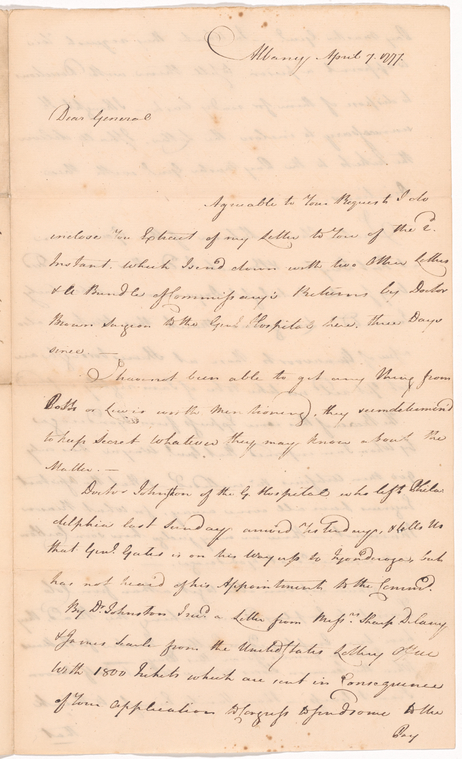 Albany April 7. 1777.
Dear General
Agreeable to Your Request I do
enclose You Extract of my Letter to You of the 2.
Instant. which I send down with two Other Letters
& a Bundle of Commissary's Returns by Doctor
Brown Surgeon to the Genl. Hospital here, three Days
since. —
I have not been able to get any thing from
or Lewis worth Mentioning, they seem determined
to keep Secret whatever they may know about the
Matter. —
Doctor Johnston of the G. Hospital who left Phila
delphia last Sunday arrived Yesterday, & tells Us
that Genl. Gates is on his Way up to Tyonderoga, but
has not heard of his Appointment to the Commd.
By Dr. Johnston I recd. a Letter from Messrs. Sharp Delany
& James Searle from the United States Lottery Office
With 1800 Tickets which are sent in Consequence
of Your Application to Congress to send some to the
Pay